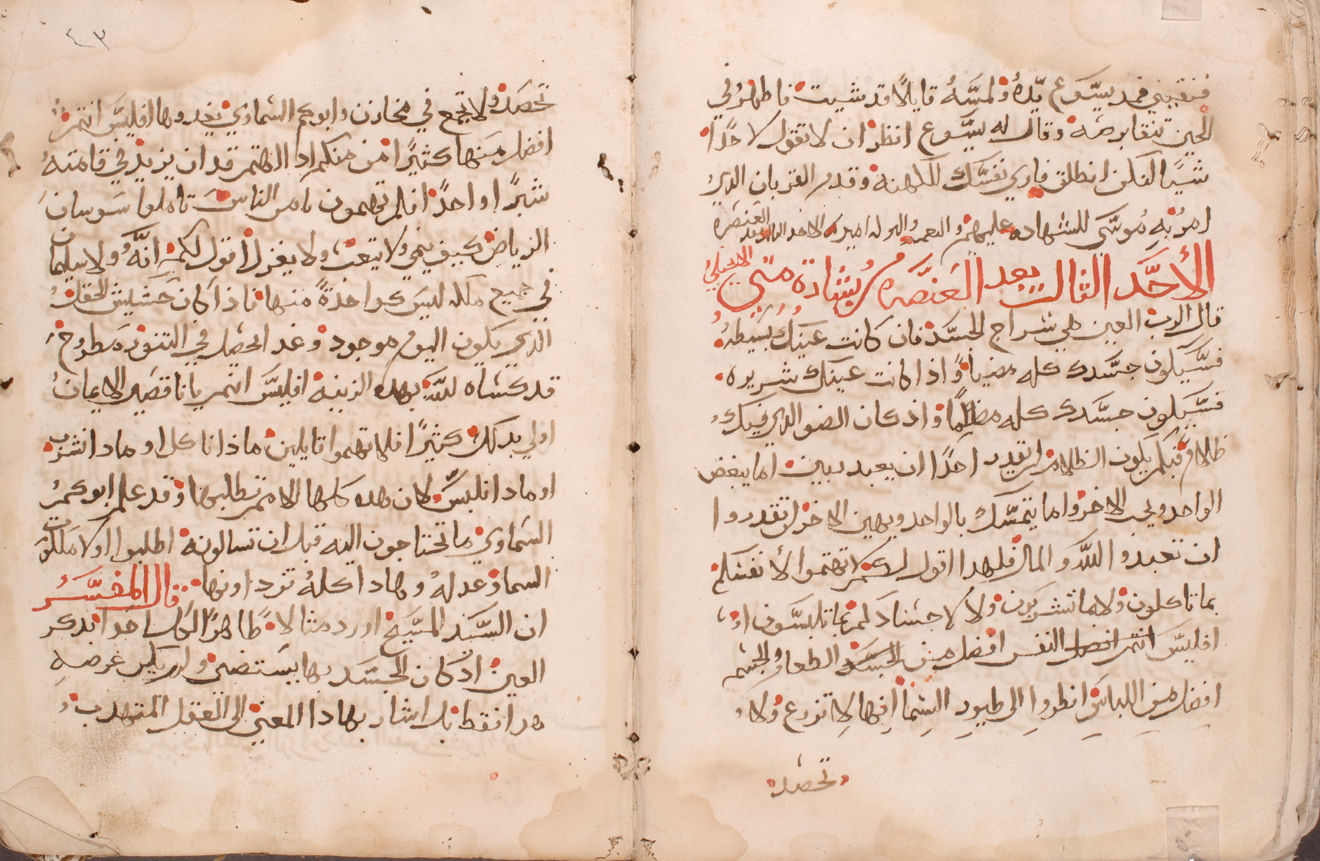 فتنقيني فمد يسوع يده ولمسه قايلاً قد شيت فاطهر وفي
الحين تنقا برصه وقال له يسوع انظر ان لا تقول لاحدًا
شيًا لكن انطلق فاري نفسك للكهنه وقدم القربان الدي
امر به موسى للشهاده عليهم
الأحَد الثالث بعد العَنصَره بشارة متي الانجيلي
قال الرب العين هي سراج الجسد فان كانت عينك بسيطه
فسَيكون جسَدك كله مضياً واذا كانت عينك شريره
فسَيكون جسَدك كله مظلمًا واذ كان الضو الدي فيك
ظلام فكم يكون الظلام لن يقدر احدًا ان يعبد ربين اما يبغض
الواحد ويحب الاخر واما يتمسَّك بالواحد ويهين الاخر لن تقدروا
ان تعبدوا اللَّه والمال فلهدا اقول لكم لا تهتموا لأنفسكم
بما تاكلون ولا ما تشربون ولا لاجسَادكم بما تلبسَون او
افليسَ انتم افضل النفس افضل من الجسَد الطعام والجسَم
افضل من اللباسَ انظروا الى طيور السَما انها لا تزرع ولا
تحصد
٤٣
تحصد ولا تجمع في مخازن وابوكم السَماوي يغدوها افليسَ انتم
افضل منها كثيرًا من منكم ادا اهتم قدان يزيد في قامته
شبرًا واحدًا فلم تهتمون بامر الناسَ تاملوا سَوسان
الرياض كيف ينمي ولا يتعب ولا يغزل أقول لكم انَّه ولا سليمان
في جميع ملكه لبسَ كواحدةً منها فاذا كان حَشيش الحقل
الدي يكون اليوم موجود وغدا يحصل في التنور مَطروح
قد كسَاه اللَّه بهده الزينه افليسَ انتم يا ناقصَين الايمان
اولى بدلك كثيرًا فلا تهتموا قايلين ماذا ناكل او مادا نشرب
او مادا نلبسَ لان هده كلها الامم تطلبها وقد علم ابوكم
السَماوي ما تحتاجون اليه قبل ان تسالونه اطلبوا اولاً ملكوت
السَماء وعدله وهادا كله تزدادونها قال المفسَّر
ان السَيد المسَيح اورد مثالاً ظاهرًا لكل احد بدكر
العين اذ كان الجسَد بها يستضي ولم يكن غرضه
هدا فقط بل اشار بهادا المعني الى العقل المتهدب